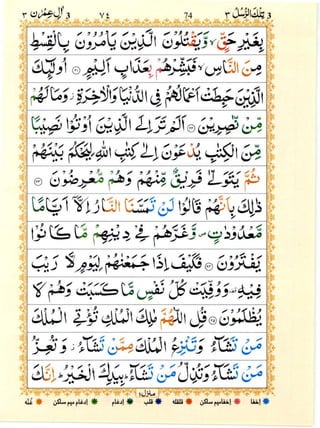 تلك الرسل ٣ 74 ٧٤ اٰل عمرٰن ٣
بِغَيْرِ حَقٍّ ۙ وَّيَقْتُلُوْنَ الَّذِيْنَ يَاْمُرُوْنَ بِالْقِسْطِ
مِنَ النَّاسِ ۙ فَبَشِّرْهُمْ بِعَذَابٍ اَلِيْمٍ ۝٢١ اُولٰٓئِكَ
الَّذِيْنَ حَبِطَتْ اَعْمَالُهُمْ فِي الدُّنْيَا وَالْاٰخِرَةِ ؗ وَمَا لَهُمْ
مِّنْ نّٰصِرِيْنَ ۝٢٢ اَلَمْ تَرَ اِلَى الَّذِيْنَ اُوْتُوْا نَصِيْبًا
مِّنَ الْكِتٰبِ يُدْعَوْنَ اِلٰى كِتٰبِ اللّٰهِ لِيَحْكُمَ بَيْنَهُمْ
ثُمَّ يَتَوَلّٰى فَرِيْقٌ مِّنْهُمْ وَهُمْ مُّعْرِضُوْنَ ۝٢٣
ذٰلِكَ بِاَنَّهُمْ قَالُوْا لَنْ تَمَسَّنَا النَّارُ اِلَّاۤ اَيَّامًا
مَّعْدُوْدٰتٍ ۪ وَّغَرَّهُمْ فِيْ دِيْنِهِمْ مَّا كَانُوْا
يَفْتَرُوْنَ ۝٢٤ فَكَيْفَ اِذَا جَمَعْنٰهُمْ لِيَوْمٍ لَّا رَيْبَ
فِيْهِ ۫ وَوُفِّيَتْ كُلُّ نَفْسٍ مَّا كَسَبَتْ وَهُمْ لَا
يُظْلَمُوْنَ ۝٢٥ قُلِ اللّٰهُمَّ مٰلِكَ الْمُلْكِ تُؤْتِي الْمُلْكَ
مَنْ تَشَآءُ وَتَنْزِعُ الْمُلْكَ مِمَّنْ تَشَآءُ ؗ وَتُعِزُّ
مَنْ تَشَآءُ وَتُذِلُّ مَنْ تَشَآءُ ؕ بِيَدِكَ الْخَيْرُ ؕ اِنَّكَ
منزل ١
اخفا اخفا میم ساکن قلقلہ قلب ادغام ادغام میم ساکن غنہ